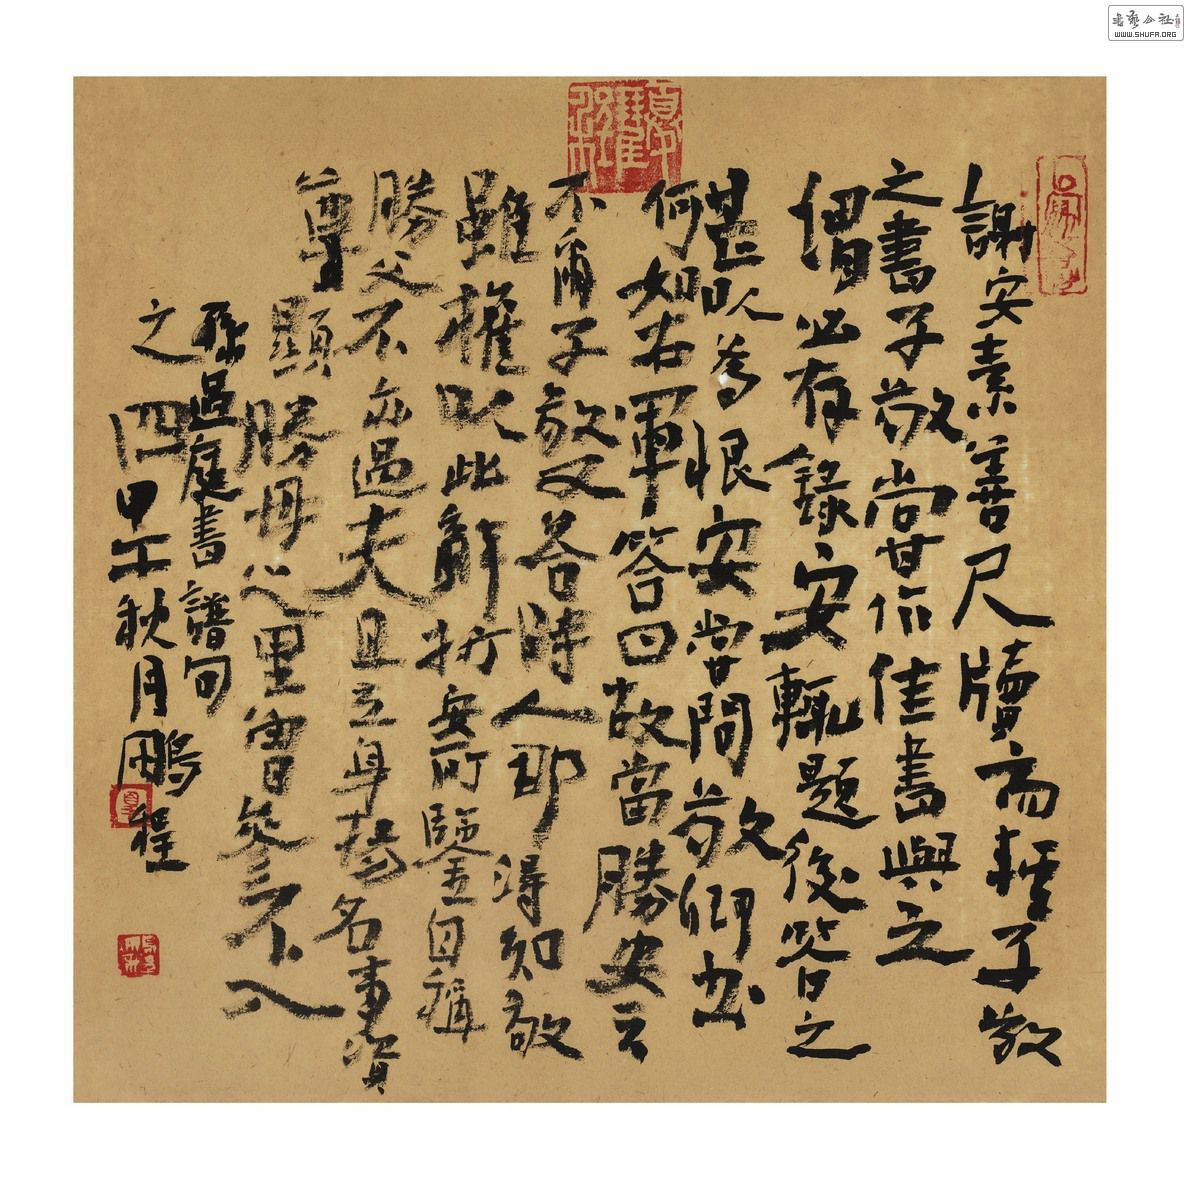 謝安素善尺牘而輕子敬
之書子敬嘗作佳書與之
謂必存錄安輒題後答之
甚以為恨安嘗問敬卿書
何如右軍答曰故當勝安云
不爾子敬又答時人那得知敬
雖權以此辭折安所鑒自稱
勝父不亦過夫且立身揚名事資
尊顯勝母之里曾參不入
孫過庭書譜句
之四甲午秋月鵬程
WWW.SHUFA.ORG